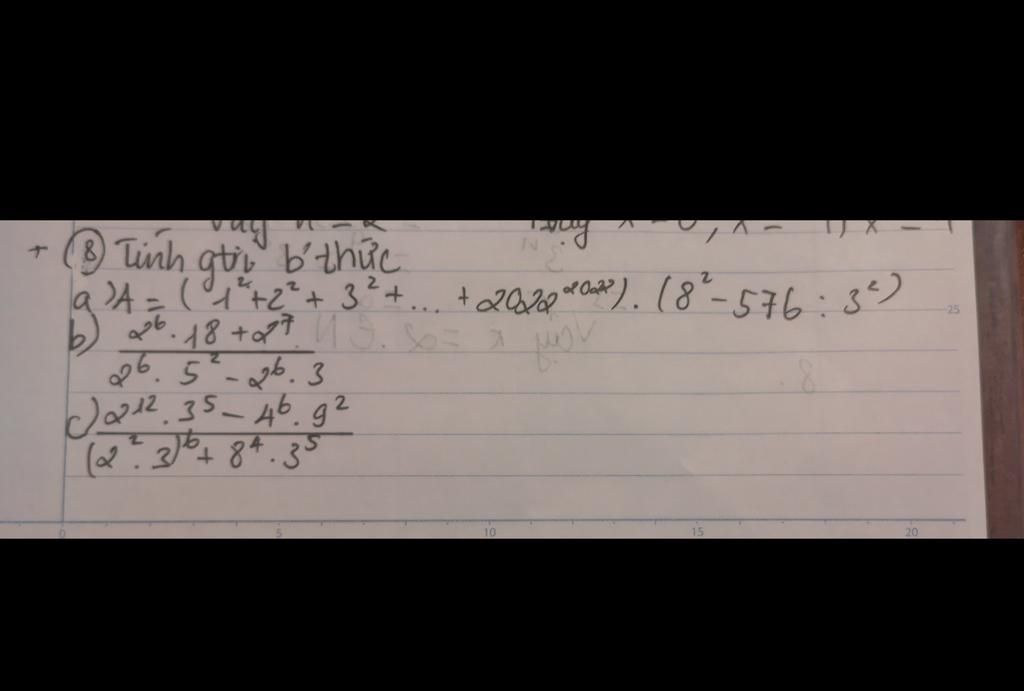 + (8) Tính gtrị b'thức
a) A = (1² + 2² + 3² + ... + 2022²⁰²²) . (8² - 576 : 3²)
b) 2⁶ . 18 + 2⁷
2⁶ . 5² - 2⁶ . 3
c) 2¹² . 3⁵ - 4⁶ . 9²
(2² . 3)⁶ + 8⁴ . 3⁵
25
0 5 10 15 20